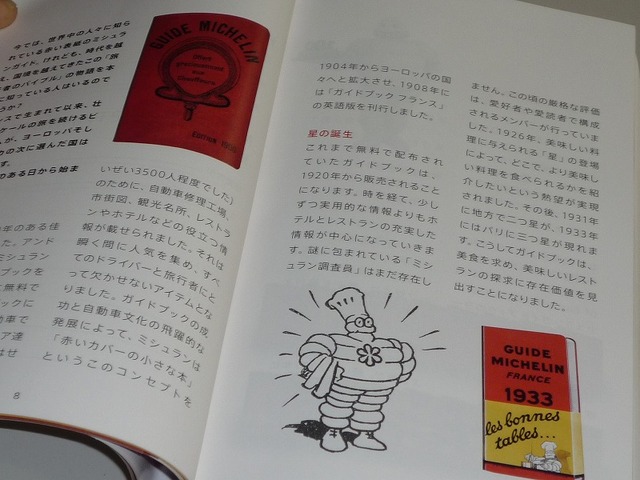 今では、世界中の人々に知ら
れている赤い表紙のミシュラ
ンガイド。けれども、時代を越
え、国境を越えてきたこの「旅
者のバイブル」の物語を本
に知っている人はいるので
うか?
ンスで生まれて以来、壮
ケールの旅を続けるビ
んが、ヨーロッパそし
の次に選んだ国は
す。
のある日から始ま
年のある佳
た。アンド
ミシュラン
ブックを
と無料で
ックに
動車で
ア達
はせ
GUIDE MICHELIN
Offert
gracieusement
aux
Chauffeurs
いぜい3500人程度でした)
のために、自動車修理工場、
市街図、観光名所、レストラ
ンやホテルなどの役立つ情
報が載せられました。それは
瞬く間に人気を集め、すべ
てのドライバーと旅行者にと
って欠かせないアイテムとな
りました。ガイドブックの成
功と自動車文化の飛躍的な
発展によって、ミシュランは
「赤いカバーの小さな本」
というこのコンセプトを
8
1904年からヨーロッパの国
々へと拡大させ、1908年に
は「ガイドブック フランス」
の英語版を刊行しました。
星の誕生
これまで無料で配布され
ていたガイドブックは、
1920年から販売されること
になります。時を経て、少し
ずつ実用的な情報よりもホ
テルとレストランの充実した
情報が中心になっていきま
す。謎に包まれている「ミシ
ュラン調査員」はまだ存在し
ません。この頃の厳格な評価
は、愛好者や愛読者で構成
されるメンバーが行っていま
した。1926年、美味しい料
理に与えられる「星」の登場
によって、どこで、より美味し
い料理を食べられるかを紹
介したいという熱望が実現
されました。その後、1931年
に地方で二つ星が、1933年
にはパリに三つ星が現れま
す。こうしてガイドブックは、
美食を求め、美味しいレスト
ランの探求に存在価値を見
出すことになりました。
GUIDE
MICHELIN
FRANCE
1933
les bonnes
tables...